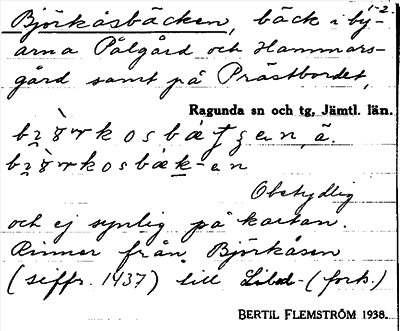 1-2.
Björkåsbäcken, bäck i by-
arna Pålgård och Hammars-
gård samt på Prästbordet,
Ragunda sn och tg, Jämtl. län.
Obetydlig
och ej synlig på kartan.
Rinner från Björkåsen
(siffr. 1437) till (fork.)
BERTIL FLEMSTRÖM 1938.